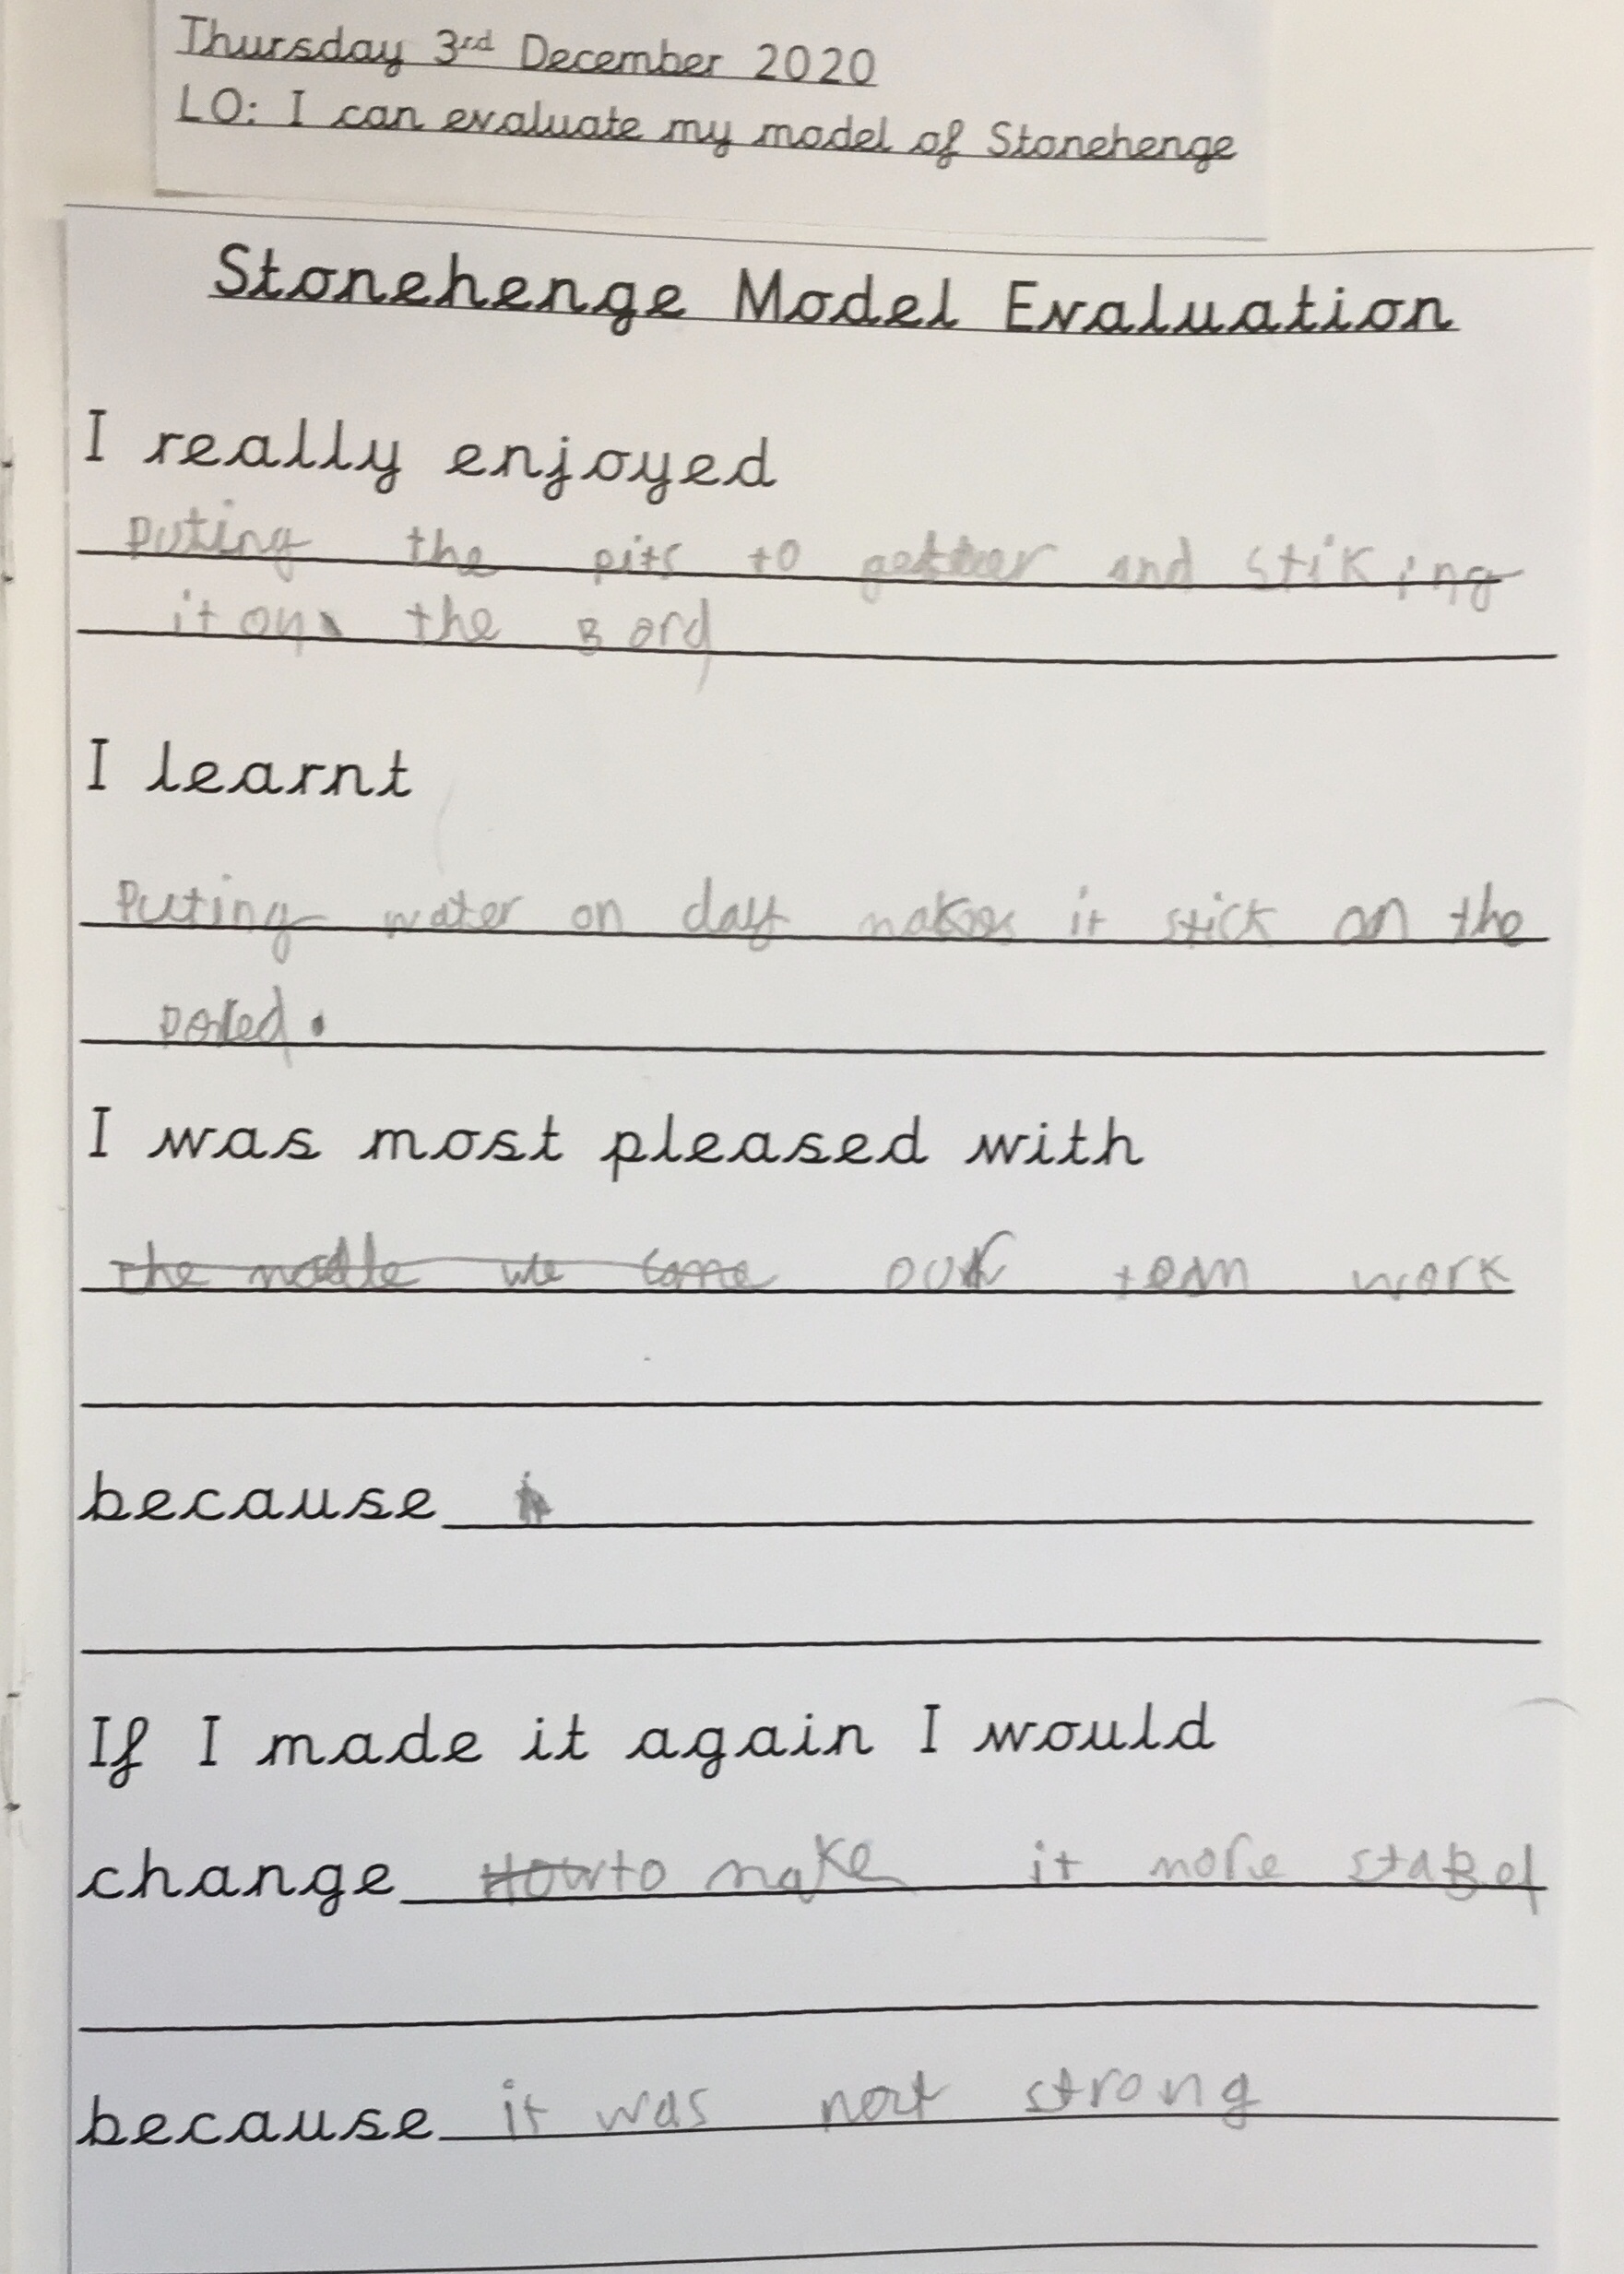 Thursday 3rd December 2020
LO: I can evaluate my model of Stonehenge
Stonehenge Model Evaluation
I really enjoyed
Puting the pits to getther and stiking
it on the Bord
I learnt
Puting water on clay makes it stick on the
I was most pleased with
the we our team work
because
If I made it again I would
change How to make it more stabel
because it was not strong